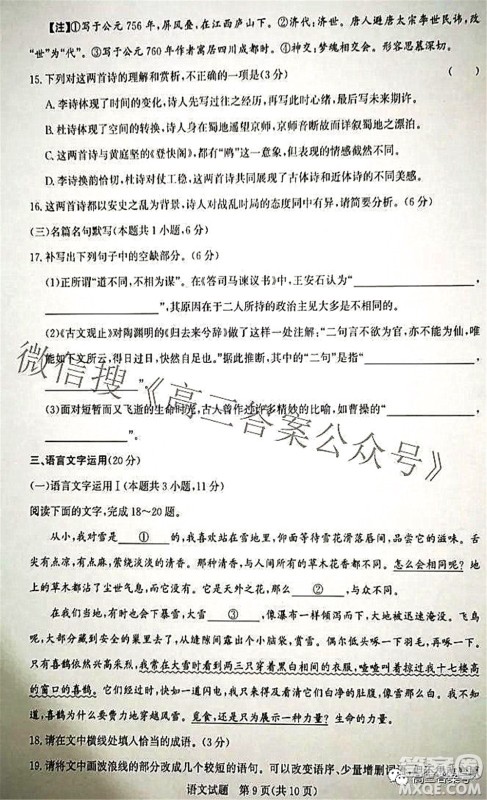 【注】①写于公元756年,屏风叠,在江西庐山下。②济代:济世。唐人避唐太宗李世民讳,改
“世”为“代”。③写于公元760年作者寓居四川成都时。④神交:梦魂相交会。形容思慕深切。
15.下列对这两首诗的理解和赏析,不正确的一项是(3分) (  )
A.李诗体现了时间的变化,诗人先写过往之经历,再写此时心绪,最后写未来期许。
B.杜诗体现了空间的转换,诗人身在蜀地遥望京师,京师音断故而详叙蜀地之漂泊。
C.这两首诗与黄庭坚的《登快阁》,都有“鸥”这一意象,但表现的情感截然不同。
D.李诗换韵恰切,杜诗对仗工稳,这两首诗共同展现了古体诗和近体诗的不同美感。
16.这两首诗都以安史之乱为背景,诗人对战乱时局的态度同中有异,请简要分析。(6分)
(三)名篇名句默写(本题共1小题,6分)
17.补写出下列句子中的空缺部分。(6分)
(1)正所谓“道不同,不相为谋”。在《答司马谏议书》中,王安石认为“____________,
____________”,其原因在于二人所持的政治主见大多是不相同的。
(2)《古文观止》对陶渊明的《归去来兮辞》做了这样一处注解:“二句言不欲为官,亦不能为仙,唯
能如下文所云,得日过日,快然自足也。”据此推断,其中的“二句”是指“____________,
____________”。
(3)面对短暂而又飞逝的生命时光,古人曾作过许多精妙的比喻,如曹操的“____________,
____________”。
三、语言文字运用(20分)
(一)语言文字运用Ⅰ(本题共3小题,11分)
阅读下面的文字,完成18~20题。
从小,我对雪是___①___的,我喜欢站在雪地里,仰面等待雪花滑落唇间,品尝它的滋味。舌
尖有点凉,有点麻,萦绕淡淡的清香。那种清香,与人间所有的草木花香都不同。怎么会相同呢?地
上的草木都沾了尘世气息,而它没有。它是天外之花,那么___②___,与众不同。
在我们当地,有时也会下暴雪,大雪___③___,像瀑布一样倾泻而下,大地被迅速淹没。飞鸟
呢,大部分藏到安全的巢里去了,从缝隙间露出个小脑袋,赏雪。偶尔低头啄一下羽毛,再啄一下。
只有喜鹊依然兴高采烈,我常在大雪时看到两三只穿着黑白相间的衣服,喳喳叫着掠过我十七楼高
的窗口的喜鹊。它们经过时,快如一道闪电,我只来得及看清它们白净的肚腹,像雪那么白。我不知
道,喜鹊为什么要费力地穿越风雪。觅食,还是只为展示一种力量?生命的力量。
18.请在文中横线处填入恰当的成语。(3分)
19.请将文中画波浪线的部分改成几个较短的语句。可以改变语序、少量增删词
语文试题 第9页(共10页)
微信搜《高三答案公众号》
高三答案号
MXQE.COM